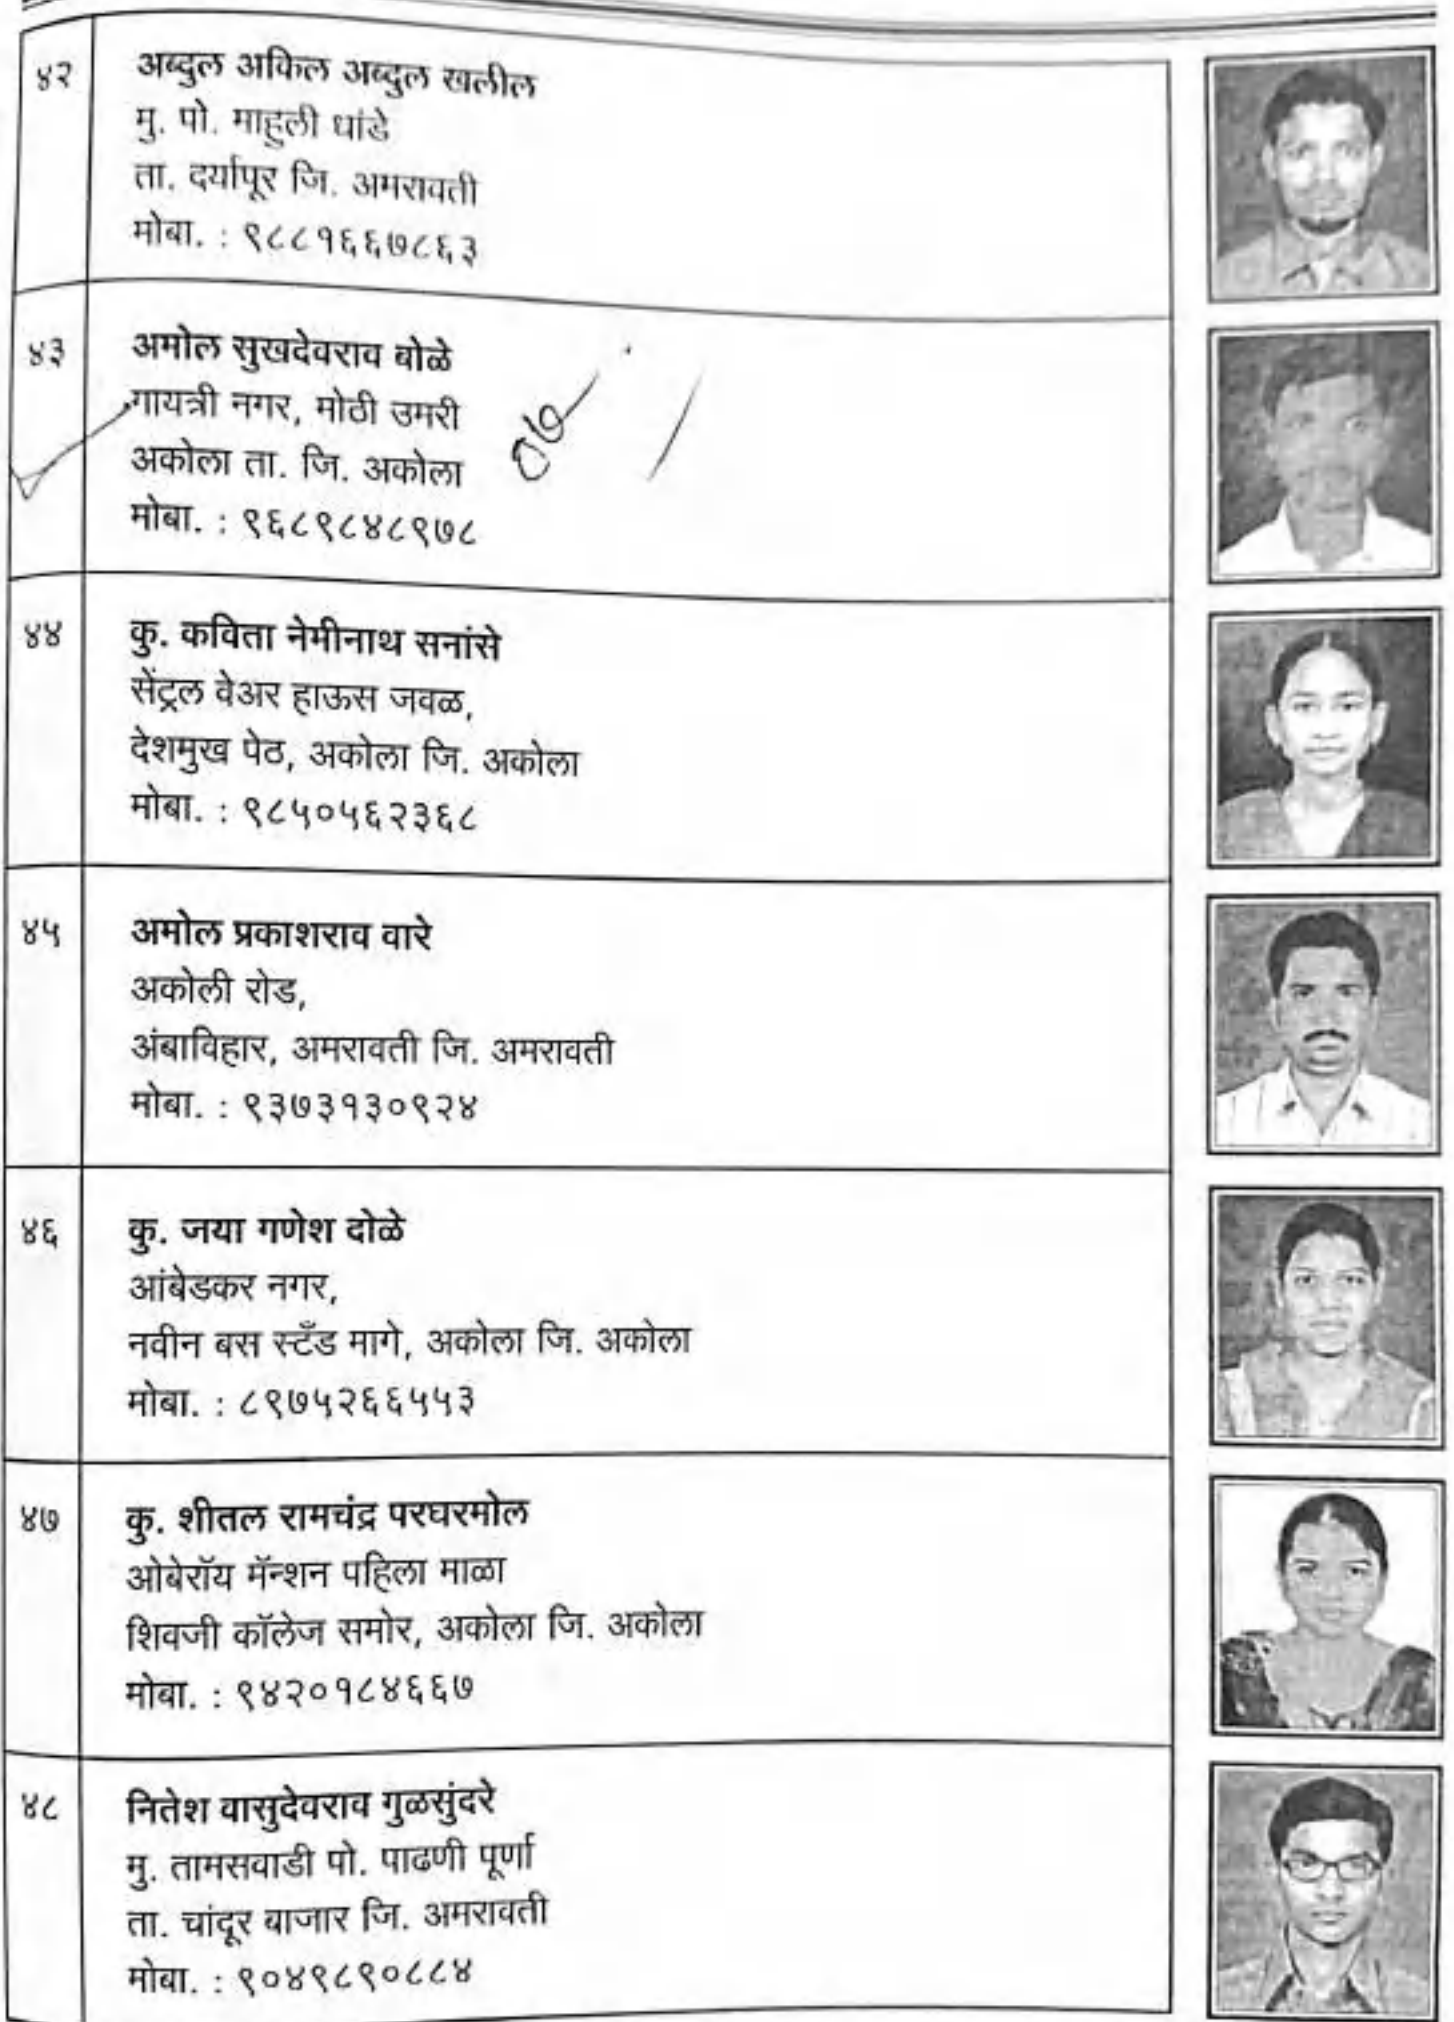 ४२
अब्दुल अकिल अब्दुल खलील
मु. पो. माहुली धांडे
ता. दर्यापूर जि. अमरावती
मोबा. : ९८८१६६७८६३
४३
अमोल सुखदेवराव बोळे
गायत्री नगर, मोठी उमरी
अकोला ता. जि. अकोला
मोबा. : ९६८९८४८९७८
४४
कु. कविता नेमीनाथ सनांसे
सेंट्रल वेअर हाऊस जवळ,
देशमुख पेठ, अकोला जि. अकोला
मोबा. : ९८५०५६२३६८
४५
अमोल प्रकाशराव वारे
अकोली रोड,
अंबाविहार, अमरावती जि. अमरावती
मोबा. : ९३७३१३०९२४
४६
कु. जया गणेश दोळे
आंबेडकर नगर,
नवीन बस स्टँड मागे, अकोला जि. अकोला
मोबा. : ८९७५२६६५५३
४७
कु. शीतल रामचंद्र परघरमोल
ओबेरॉय मॅन्शन पहिला माळा
शिवजी कॉलेज समोर, अकोला जि. अकोला
मोबा. : ९४२०१८४६६७
४८
नितेश वासुदेवराव गुळसुंदरे
मु. तामसवाडी पो. पाढणी पूर्णा
ता. चांदूर बाजार जि. अमरावती
मोबा. : ९०४९८९०८८४